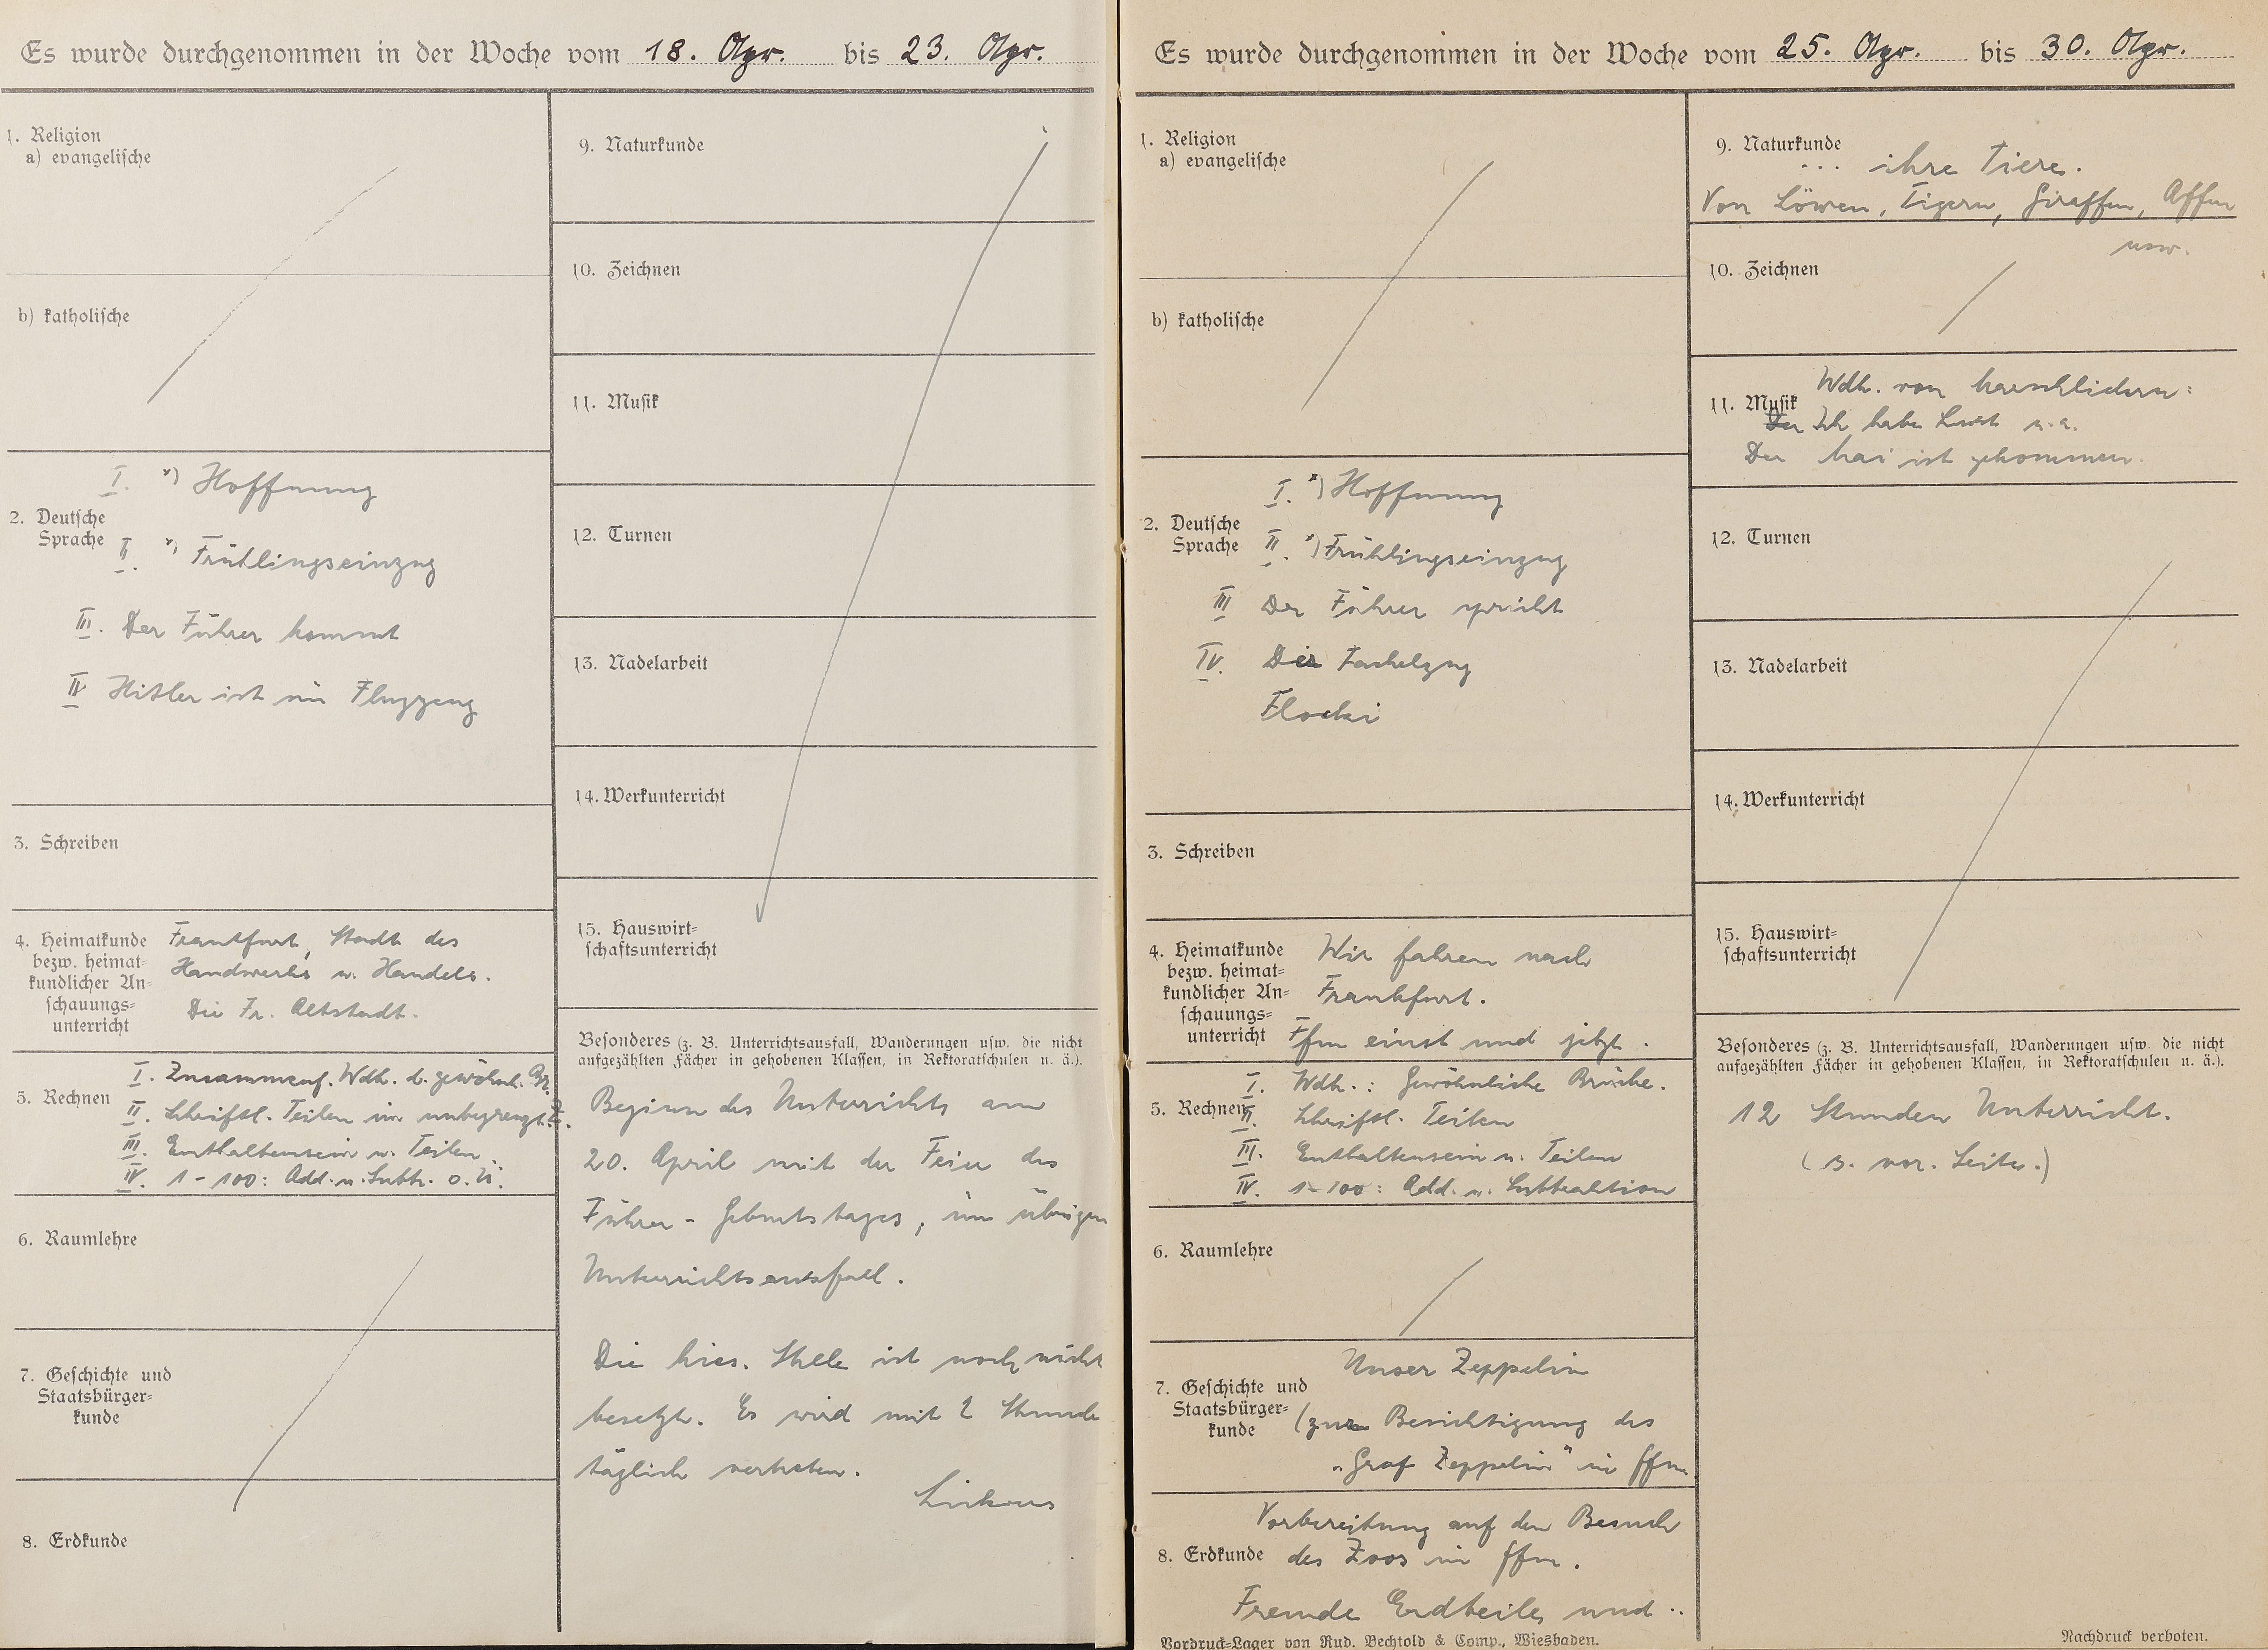 Es wurde durchgenommen in der Woche vom 18. Apr. bis 23. Apr.
1. Religion
a) evangelische
b) katholische
I. *) Hoffnung
2. Deutsche
Sprache
II. *) Frühlingseinzug
III. Der Führer kommt
IV Hitler ist im Flugzeug
3. Schreiben
4. Heimatkunde
bezw. heimat=
kundlicher An=
schauungs=
unterricht
Frankfurt, Stadt des
Handwerks u. Handels.
Die Fr. Altstadt.
5. Rechnen
I. Zusammenf. Wdh. d. gewöhnl.
II. Schriftl. Teilen im unbegrenzt. Z.
III. Enthaltensein u. Teilen
IV. 1-100: Add. u. Subtr. o. Ü.
6. Raumlehre
7. Geschichte und
Staatsbürger=
kunde
8. Erdkunde
9. Naturkunde
10. Zeichnen
11. Musik
12. Turnen
13. Nadelarbeit
14. Werkunterricht
15. Hauswirt=
schaftsunterricht
Besonderes (z. B. Unterrichtsausfall, Wanderungen usw. die nicht
aufgezählten Fächer in gehobenen Klassen, in Rektoratschulen u. ä.).
Beginn des Unterrichts am
20. April mit der Feier des
Führer-Geburtstages, im übrigen
Unterrichtsausfall.
Die hies. Stelle ist noch nicht
besetzt. Es wird mit 2 Stunde
täglich vertreten.
Es wurde durchgenommen in der Woche vom 25. Apr. bis 30. Apr.
1. Religion
a) evangelische
b) katholische
I. *) Hoffnung
2. Deutsche
Sprache
II. *) Frühlingseinzug
III Der Führer spricht
IV. Der Fackelzug
Flocki
3. Schreiben
4. Heimatkunde
bezw. heimat=
kundlicher An=
schauungs=
unterricht
Wir fahren nach
Frankfurt.
Ffm einst und jetzt.
5. Rechnen
I. Wdh.: Gewöhnliche Brüche.
II. Schriftl. Teilen
III. Enthaltensein u. Teilen
IV. 1-100: Add. u. Subtraktion
6. Raumlehre
7. Geschichte und
Staatsbürger=
kunde
Unser Zeppelin
(zur Besichtigung des
„Graf Zeppelin" in Ffm
8. Erdkunde
Vorbereitung auf den Besuch
des Zoos in Ffm.
Fremde Erdteile und ..
Vordruck=Lager von Rud. Bechtold & Comp., Wiesbaden.
9. Naturkunde
... ihre Tiere.
Von Löwen, Tigern, Giraffen, Affen
usw.
10. Zeichnen
11. Musik
Wdh. von Marschliedern:
Der Ich habe Lust u. a.
Der Mai ist gekommen.
12. Turnen
13. Nadelarbeit
14. Werkunterricht
15. Hauswirt=
schaftsunterricht
Besonderes (z. B. Unterrichtsausfall, Wanderungen usw. die nicht
aufgezählten Fächer in gehobenen Klassen, in Rektoratschulen u. ä.).
12 Stunden Unterricht.
(s. vor. Seite.)
Nachdruck verboten.